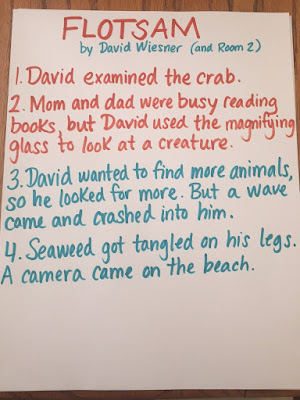 FLOTSAM
by David Wiesner (and Room 2)
1. David examined the crab.
2. Mom and dad were busy reading
books, but David used the magnifying
glass to look at a creature.
3. David wanted to find more animals,
so he looked for more. But a wave
came and crashed into him.
4. Seaweed got tangled on his legs.
A camera came on the beach.